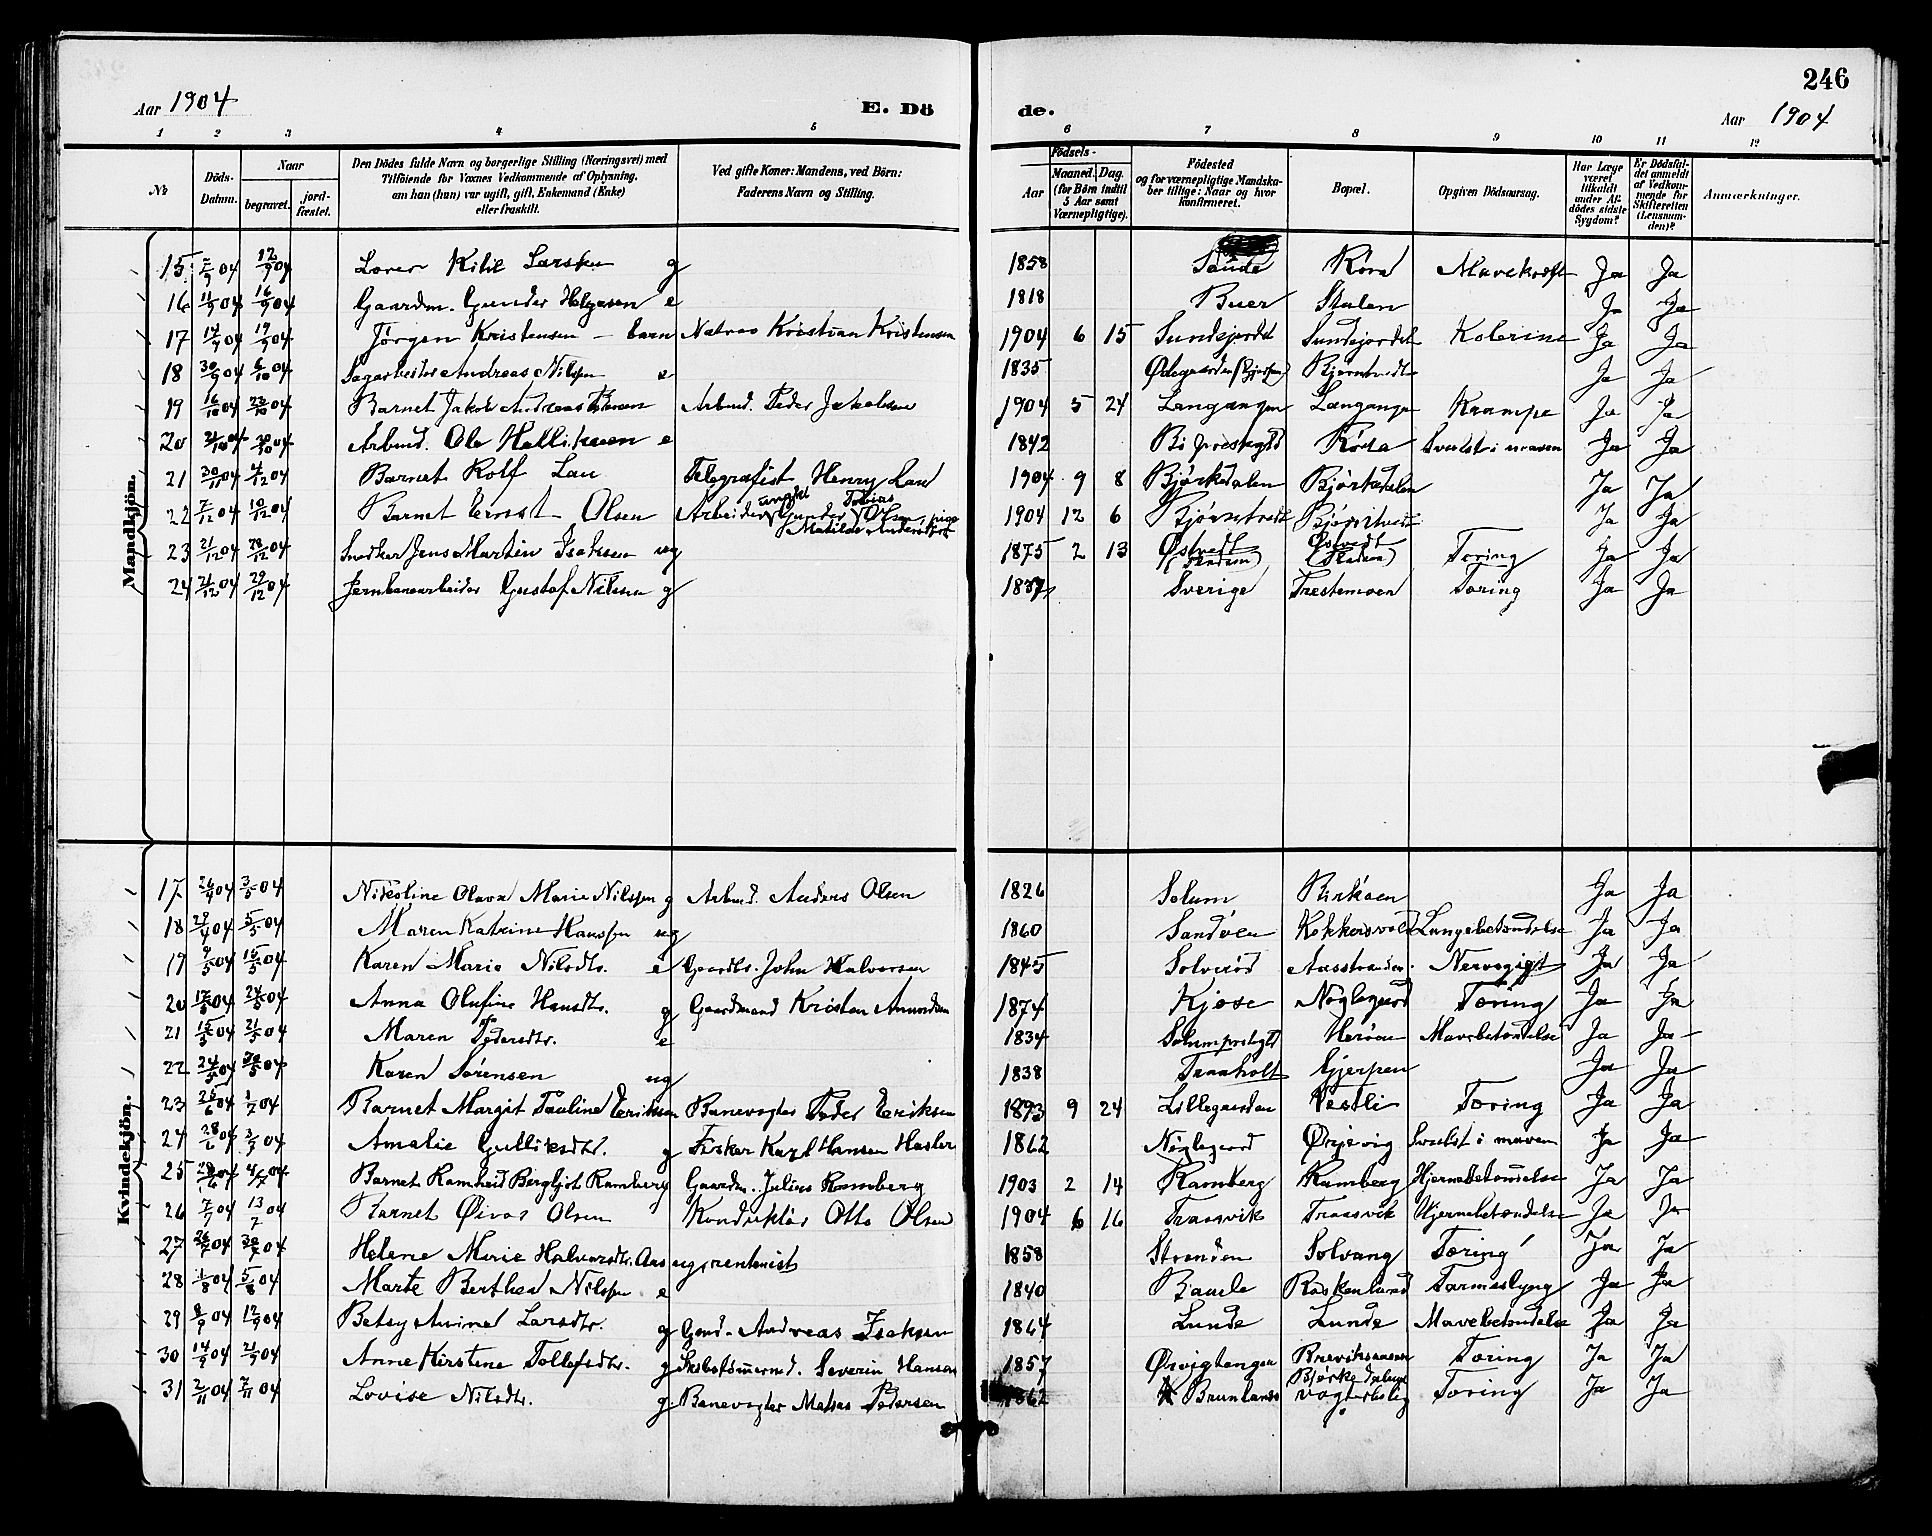 246
Aar 1904 E. Dö de. Aar 1904
1 2 3 4 5 6 7 8 9 10 11 12
No Döds-Datum. Naar begravet. jord-fæstet. Den Dödes fulde Navn og borgerlige Stilling (Næringsvei) med Tilföiende for Voxnes Vedkommende af Oplysning, om han (hun) var ugift, gift, Enkemand (Enke) eller fraskilt. Ved gifte Koner: Mandens, ved Börn: Faderens Navn og Stilling. Födsels- Aar Maaned. Dag. (for Börn indtil 5 Aar samt Værnepligtige). Födested og for værnepligtige Mandskaber tillige: Naar og hvor konfirmeret. Bopæl. Opgiven Dödsaarsag. Har Læge været tilkaldt under Afdödes sidste Sygdom? Er Dödsfaldet anmeldt af Vedkommende for Skifteretten (Lensmanden)? Anmærkninger.
Mandkjön.
15 7/9 04 12/9 04 Larsen g 1858 Saude Røra Mavekræft Ja Ja
16 11/9 04 16/9 04 Gaardm. Gunder Helgesen e 1818 Buer Stulen Ja Ja
17 14/9 04 19/9 04 Jørgen Kristensen - barn Kristian Kristensen 1904 6 15 Sundsjordet Sundsjordet Kolerine Ja Ja
18 30/9 04 6/10 04 Sagarbeider Andreas Nilsen e 1835 Ødegaarden Bjørntvedt Ja Ja
19 16/10 04 23/10 04 Barnet Jakob Andreas Arbmd. Peder Jakobsen 1904 5 24 Langangen Langangen Krampe Ja Ja
20 04 30/10 04 Arbmd. Ole Halliksen e 1842 Bø prestegjld Røra Svulst i maven Ja Ja
21 30/11 04 4/12 04 Barnet Rolf Lau Telegrafist Henry Lau 1904 9 8 Bjørkedalen Bjørkedalen Ja Ja
22 7/12 04 10/12 04 Barnet Ernst Olsen Arbeider ungkl Gunder Tobias Olsen, pige Matilde Andersen 1904 12 6 Bjørntvedt Bjørntvedt Ja Ja
23 21/12 04 28/12 04 Snedker Jens Martin Isaksen ug 1875 2 13 Østvedt Østvedt Tæring Ja Ja
24 21/12 04 29/12 04 Jernbanearbeider Gustaf Nilsen g 1837 Sverige Prestemoen Tæring Ja Ja
Kvindekjön.
17 26/4 04 3/5 04 Nikoline Olava Marie Nilssen g Arbmd. Anders Olsen 1826 Solum Ja Ja
18 29/4 04 5/5 04 Maren Katrine Hanssen ug 1860 Sandøen Kokkersvold Lungebetændelse Ja Ja
19 9/5 04 15/5 04 Karen Marie Nilsdtr. e Gaardbr. John Halvorsen 1845 Solverød Aasstranden Nervegigt Ja Ja
20 17/5 04 24/5 04 Anna Olufine Hansdtr. g Gaardmand Kristen Amundsen 1874 Kjøse Nøglegaard Tæring Ja Ja
21 15/5 04 21/5 04 Maren Pedersdtr. e 1834 Solumprstgld Herøen Mavebetændelse Ja Ja
22 24/5 04 30/5 04 Karen Sørensen ug 1838 Traaholt Gjerpen Ja Ja
23 25/6 04 1/7 04 Barnet Margit Pauline Eriksen Banevogter Peder Eriksen 1893 9 24 Lillegaarden Vestli Tæring Ja Ja
24 28/6 04 3/7 04 Amalie Gulliksdtr. g Fisker Karl Hansen Hasler 1862 Nøglegaard Ørjevig Svulst i maven Ja Ja
25 28/6 04 4/7 04 Barnet Ramheid Bergljot Ramberg Gaardm. Julius Ramberg 1903 2 14 Ramberg Ramberg Hjernebetændelse Ja Ja
26 7/7 04 13/7 04 Barnet Øivor Olsen Konduktør Otto Olsen 1904 6 16 Traasvik Traasvik Hjernebetændelse Ja Ja
27 26/7 04 30/7 04 Helene Marie Halvorsdtr. Aas ug, rentenist 1858 Stranden Solvang Tæring Ja Ja
28 1/8 04 5/8 04 Marte Berthea Nilssen e 1840 Bamle Røskenlund Tarmeslyng Ja Ja
29 8/9 04 12/9 04 Betsy Amine Larsdtr. g Gmd. Andreas Isaksen 1864 Lunde Lunde Mavebetændelse Ja Ja
30 14/9 04 21/9 04 Anne Kirstine Tollefsdtr. g Skibstømrmd. Severin Hansen 1857 Ørvigtangen Tæring Ja Ja
31 2/11 04 7/11 04 Lovise Nilsdtr. g Banevogter Matias Pedersen 1862 Brunlanes Bjørkedalens vogterbolig Tæring Ja Ja